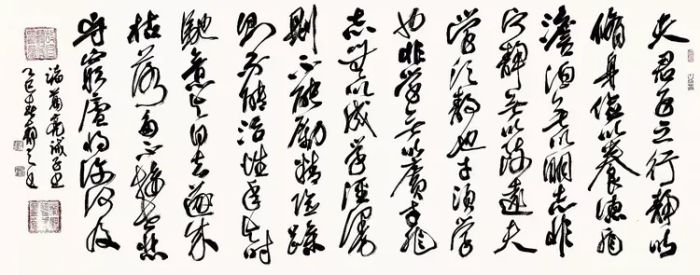 夫君子之行靜以
脩身儉以養德非
澹泊無以明志非
寧靜無以致遠夫
學須靜也才須學
也非學無以廣才非
志無以成學淫慢
則不能勵精險躁
則不能治性年與時
馳意與日去遂成
枯落多不接世悲
守窮廬將復何及
諸葛亮誡子書
乙巳